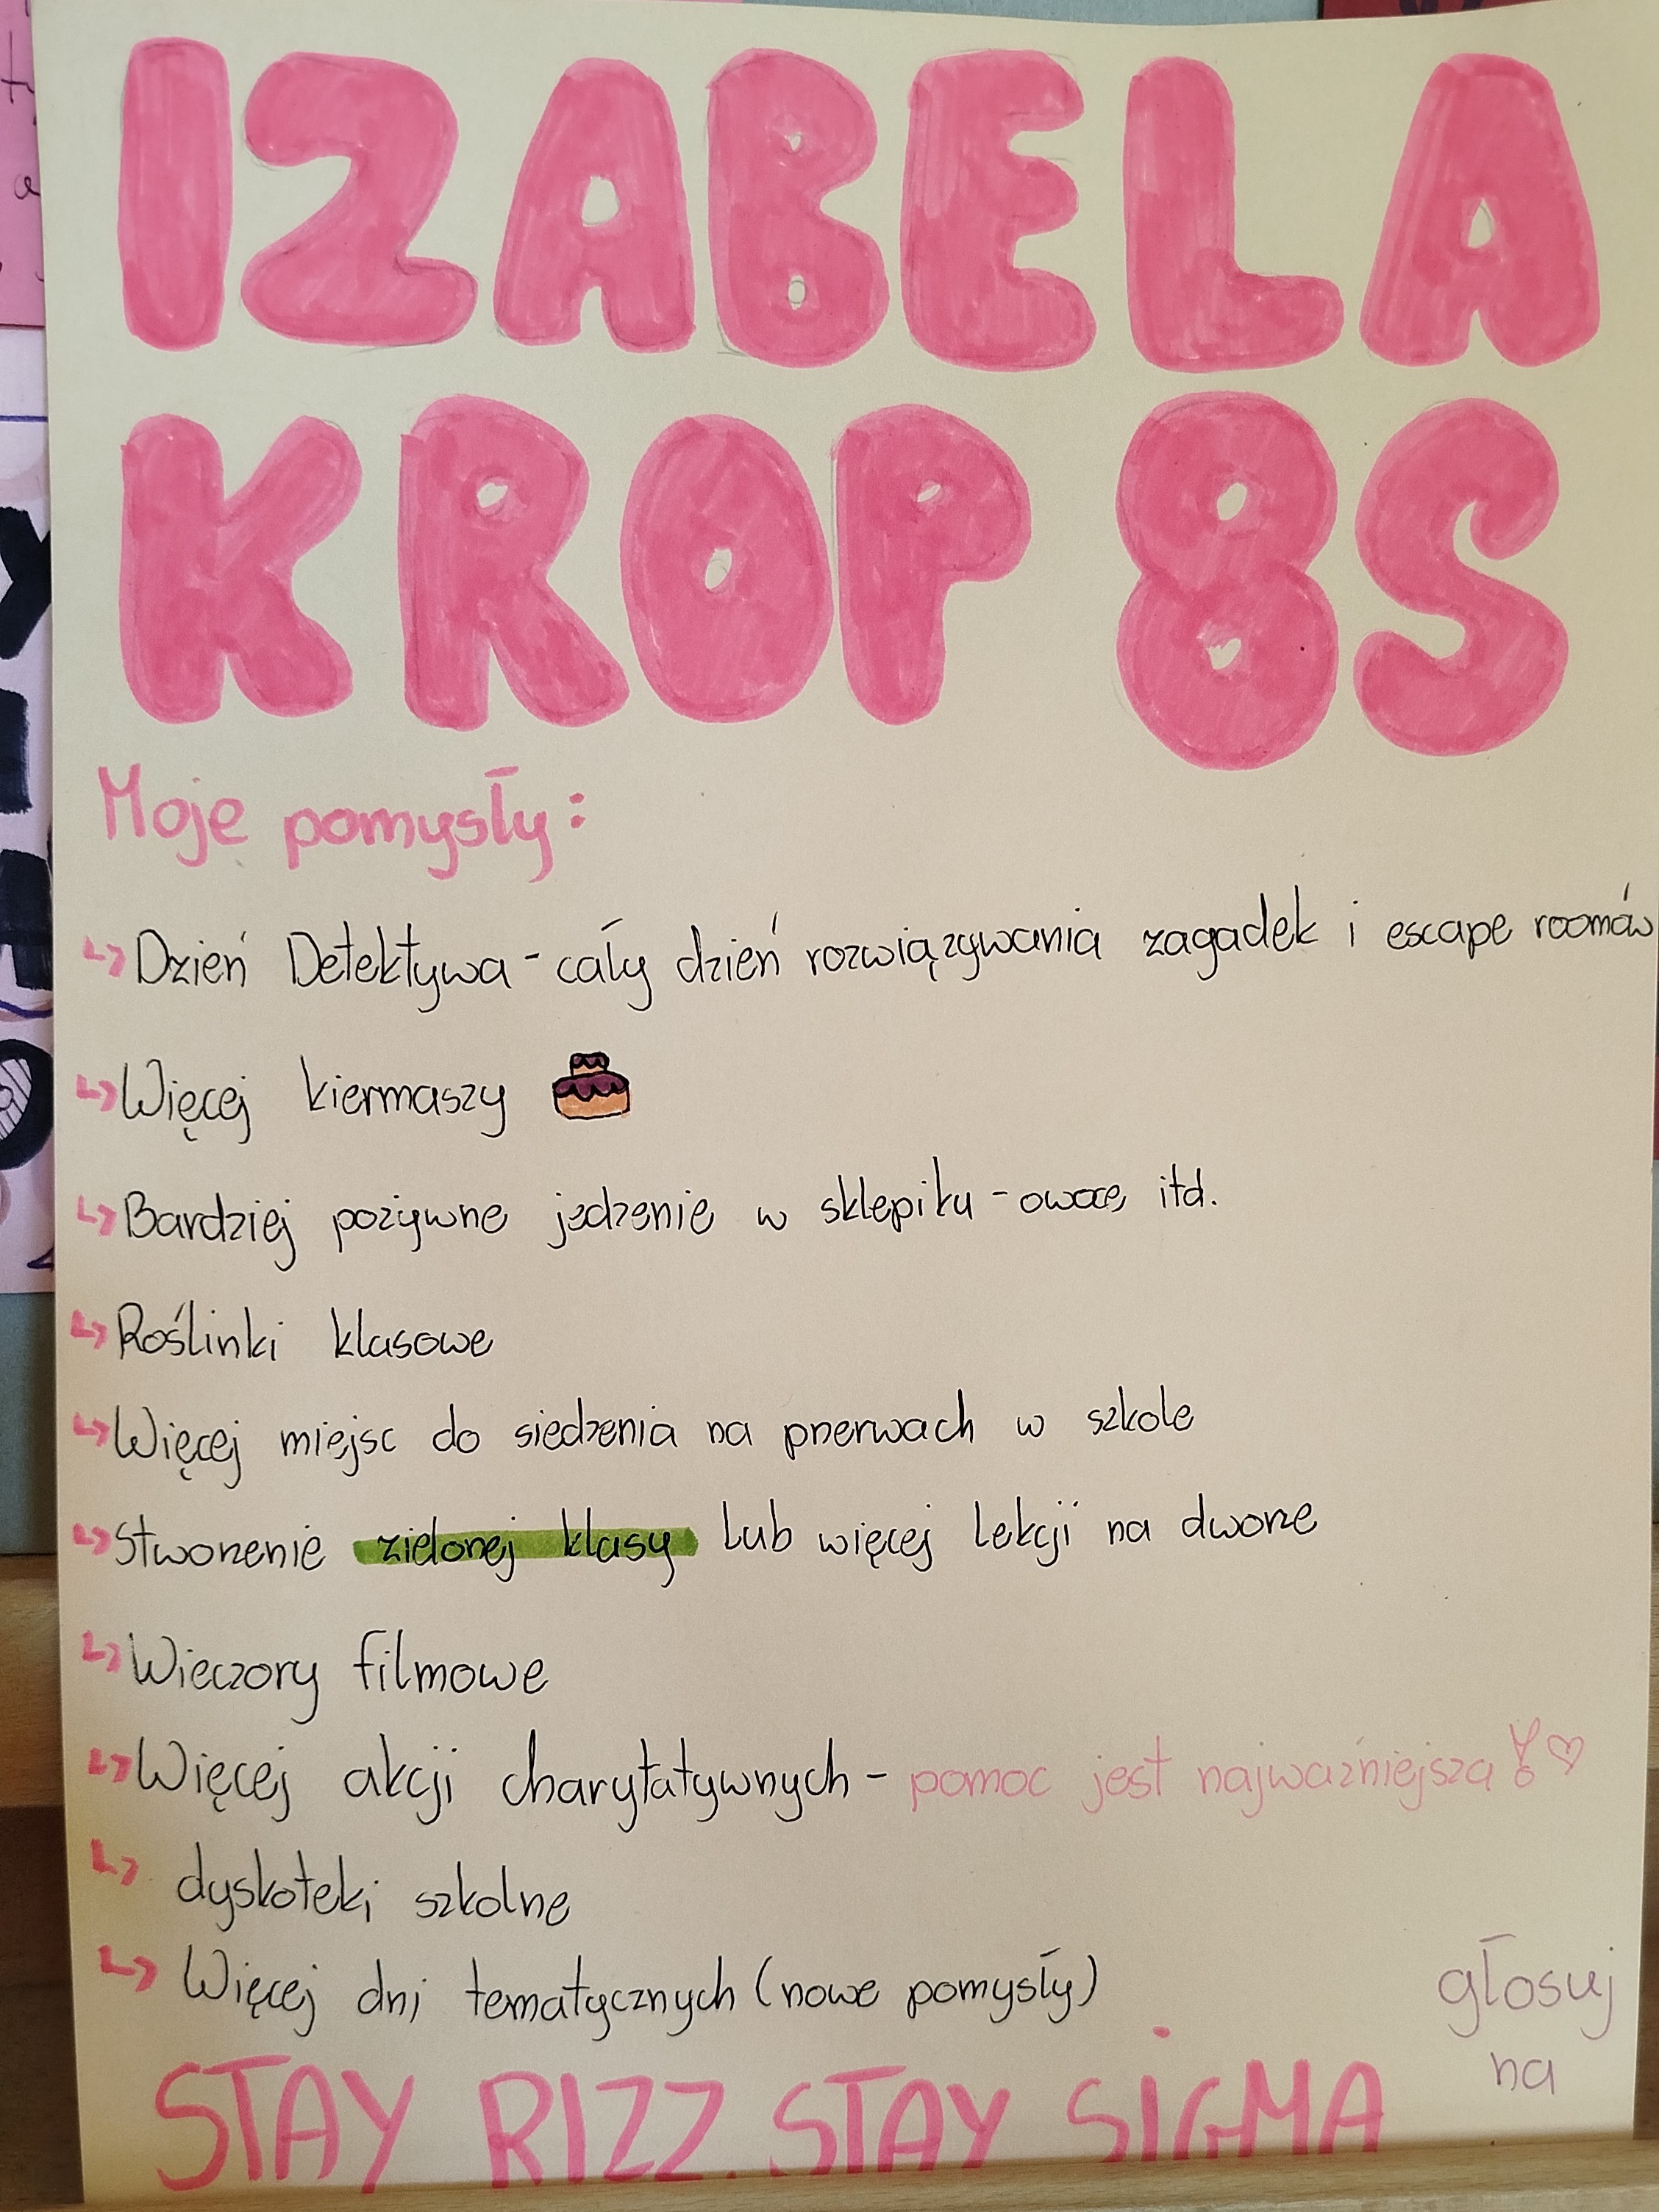 IZABELA
KROP 8S
Moje pomysły:
↳ Dzień Detektywa - cały dzień rozwiązywania zagadek i escape roomów
↳ Więcej kiermaszy
↳ Bardziej pożywne jedzenie w sklepiku - owoce, itd.
↳ Roślinki klasowe
↳ Więcej miejsc do siedzenia na przerwach w szkole
↳ Stworzenie zielonej klasy lub więcej lekcji na dworze
↳ Wieczory filmowe
↳ Więcej akcji charytatywnych - pomoc jest najważniejsza! ♡
↳ dyskoteki szkolne
↳ Więcej dni tematycznych (nowe pomysły)
głosuj
na
STAY RIZZ. STAY SIGMA